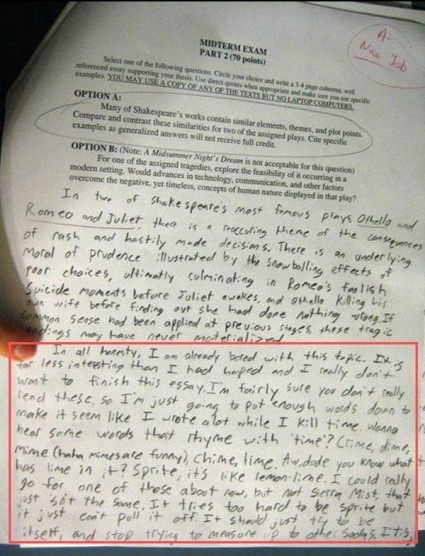 A-
Nice Job
MIDTERM EXAM
PART 2 (70 points)
Select one of the following questions. Circle your choice and write a 3-4 page columns, well
referenced essay supporting your thesis. Use direct quotes when appropriate and make sure you use specific
examples. YOU MAY USE A COPY OF ANY OF THE TEXTS BUT NO LAPTOP COMPUTERS.
OPTION A:
Many of Shakespeare's works contain similar elements, themes, and plot points.
Compare and contrast these similarities for two of the assigned plays. Cite specific
examples as generalized answers will not receive full credit.
OPTION B: (Note: A Midsummer Night's Dream is not acceptable for this question)
For one of the assigned tragedies, explore the feasibility of it occurring in a
modern setting. Would advances in technology, communication, and other factors
overcome the negative, yet timeless, concepts of human nature displayed in that play?
In two of Shakespeare's most famous plays Othello and
Romeo and Juliet, there is a reoccuring theme of the consequences
of rash and hastily made decisions. There is an underlying
moral of prudence illustrated by the snowballing effects of
poor choices, ultimatly culminating in Romeo's foolish
suicide moments before Juliet awakes, and Othello killing his
own wife before finding out she had done nothing wrong. If
common sense had been applied at previous stages, these tragic
endings may have never materialized.
In all honesty, I am already bored with this topic. It is
far less interesting than I had hoped and I really don't
want to finish this essay. I'm fairly sure you don't really
read these, so I'm just going to put enough words down to
make it seem like I wrote alot while I kill time. Wanna
hear some words that rhyme with 'time'? Crime, dime,
mime (haha mimes are funny), chime, lime. Aw, dude you know what
has lime in it? Sprite, it's like lemon-lime. I could really
go for one of those about now, but not Sierra Mist, that
just isn't the same. It tries too hard to be sprite but
it just can't pull it off. It should just try to be
itself, and stop trying to measure up to other sodas. It's,